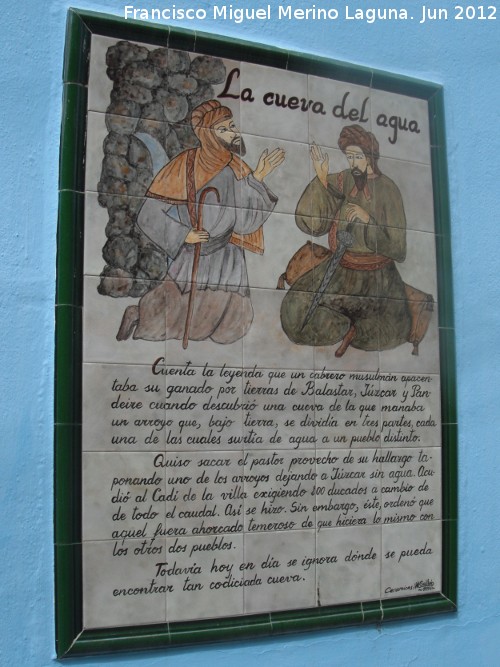 Francisco Miguel Merino Laguna. Jun 2012
La cueva del agua
Cuenta la leyenda que un cabrero musulmán apacen-
taba su ganado por tierras de Balastar, Júzcar y Pan-
deire cuando descubrió una cueva de la que manaba
un arroyo que, bajo tierra, se dividía en tres partes, cada
una de las cuales surtía de agua a un pueblo distinto.
Quiso sacar el pastor provecho de su hallazgo ta-
ponando uno de los arroyos dejando a Júzcar sin agua. Acu-
dió al Cadi de la villa exigiendo 100 ducados a cambio de
de todo el caudal. Así se hizo. Sin embargo, éste, ordenó que
aquel fuera ahorcado temeroso de que hiciera lo mismo con
los otros dos pueblos.
Todavía hoy en día se ignora dónde se pueda
encontrar tan codiciada cueva.